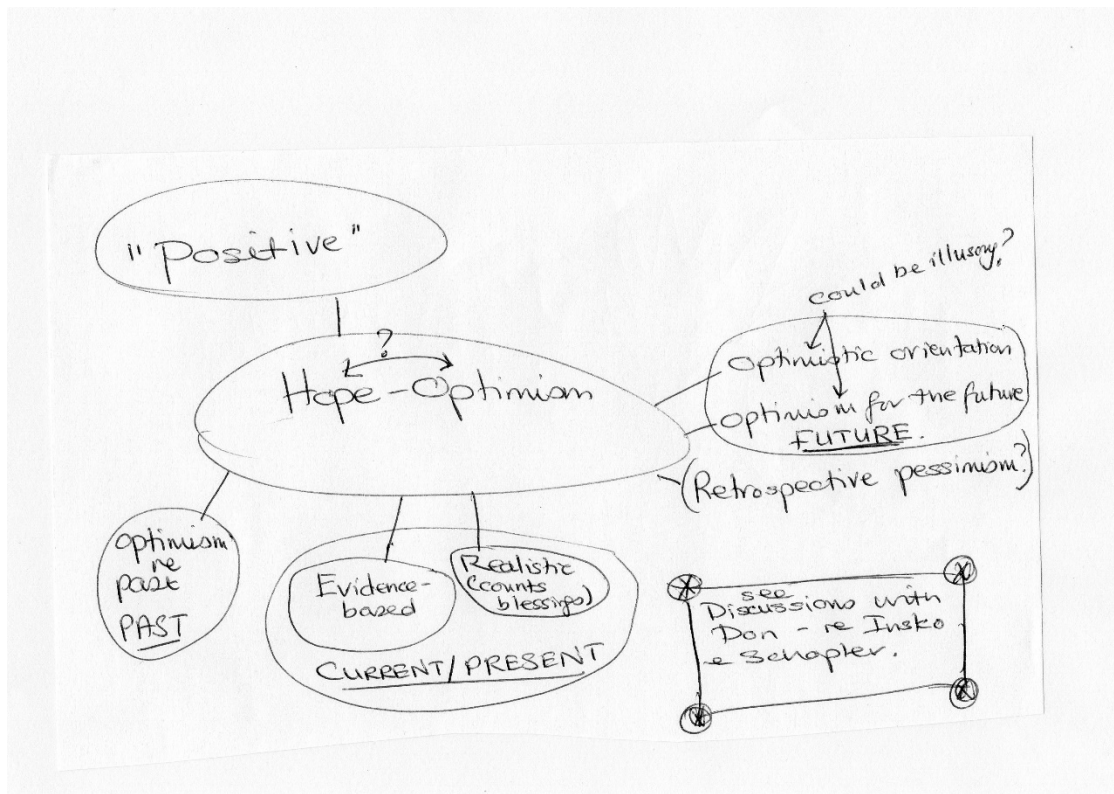 "Positive"
could be illusory?
?
Hope-Optimism
Optimistic orientation
Optimism for the future
FUTURE.
(Retrospective pessimism?)
Optimism
re
past
PAST
Evidence-
based
Realistic
(counts
blessings)
CURRENT/PRESENT
see
Discussions with
Don - re Insko
& Schopler.